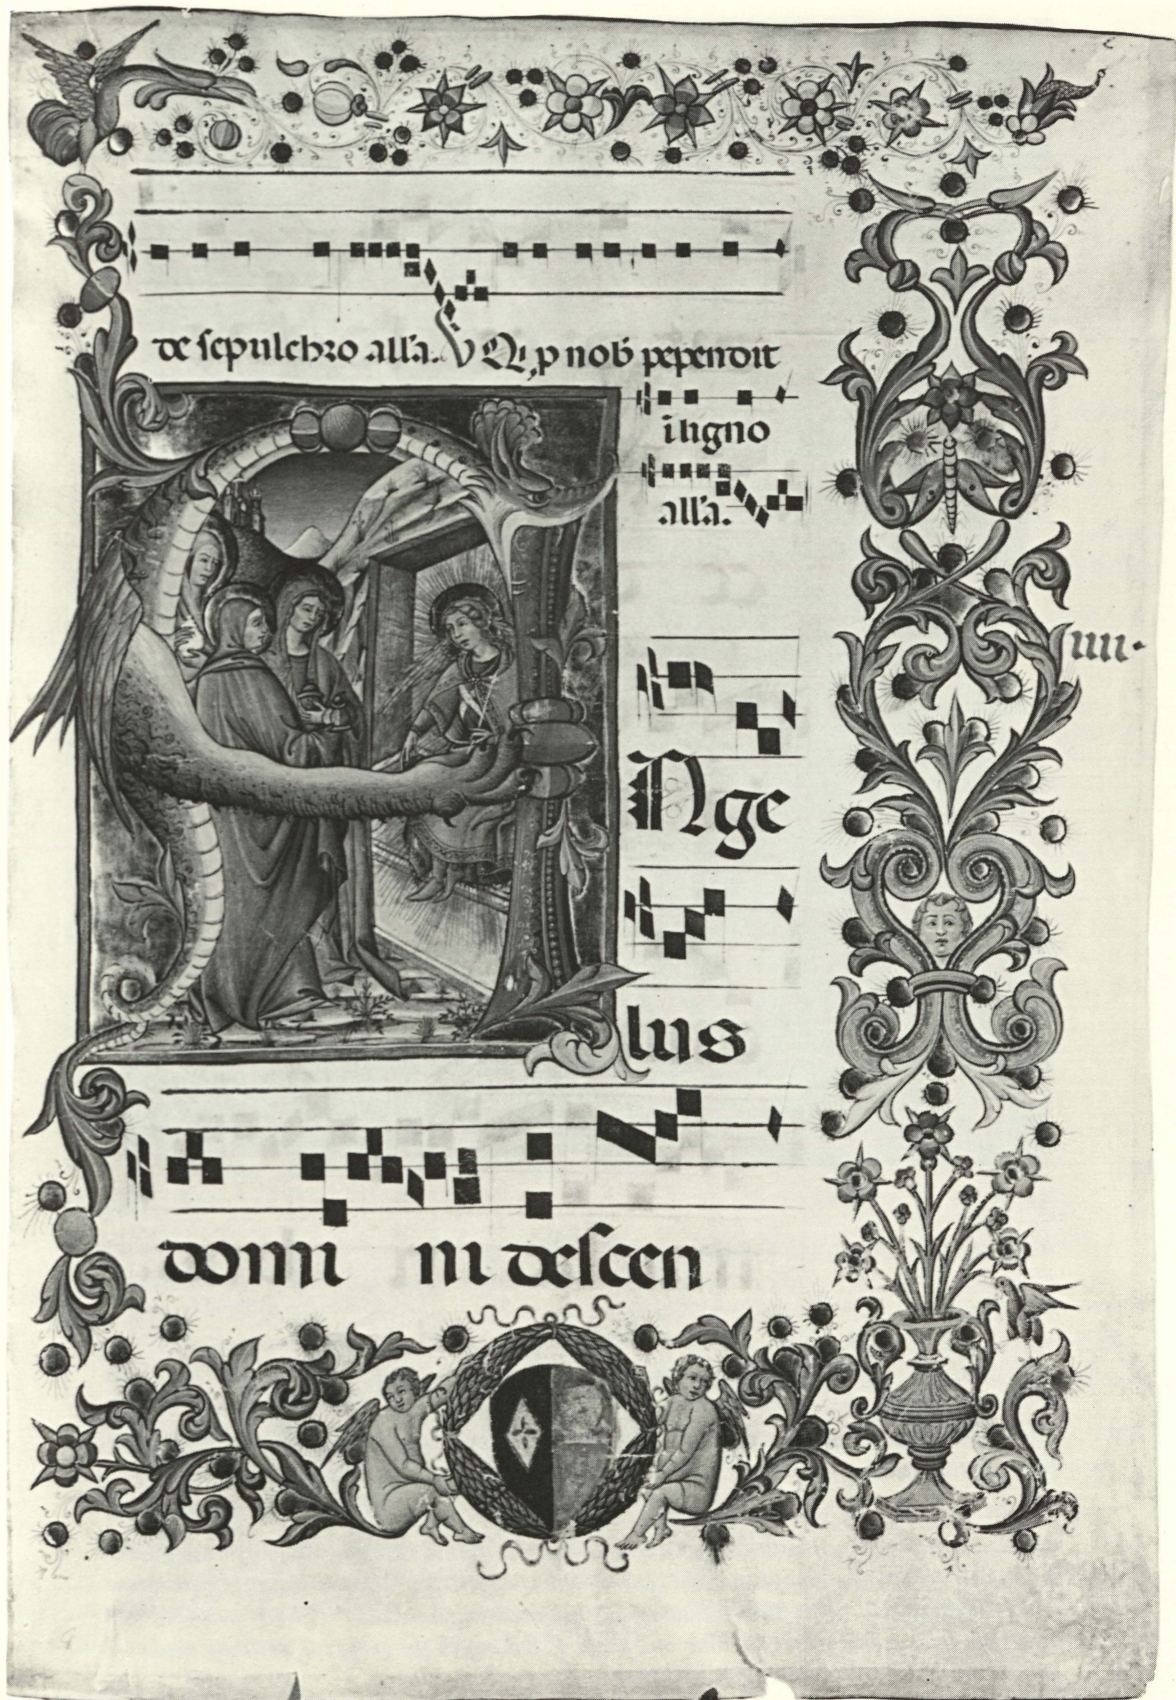 de sepulchro alla. V Qi p nob pependit
i ligno
alla.
iiii.
Nge
lus
domi ni descen